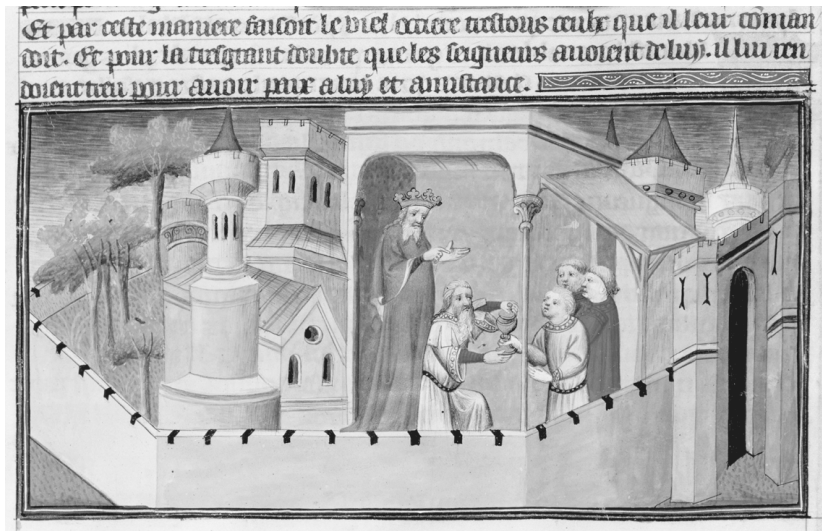 Et par ceste maniere faisoit le viel occire trestous ceulx que il leur cōman
doit. Et pour la tresgrant doubte que les seigneurs auoient de luy. il lui ren
doient treu pour auoir paix a luy et amistance.